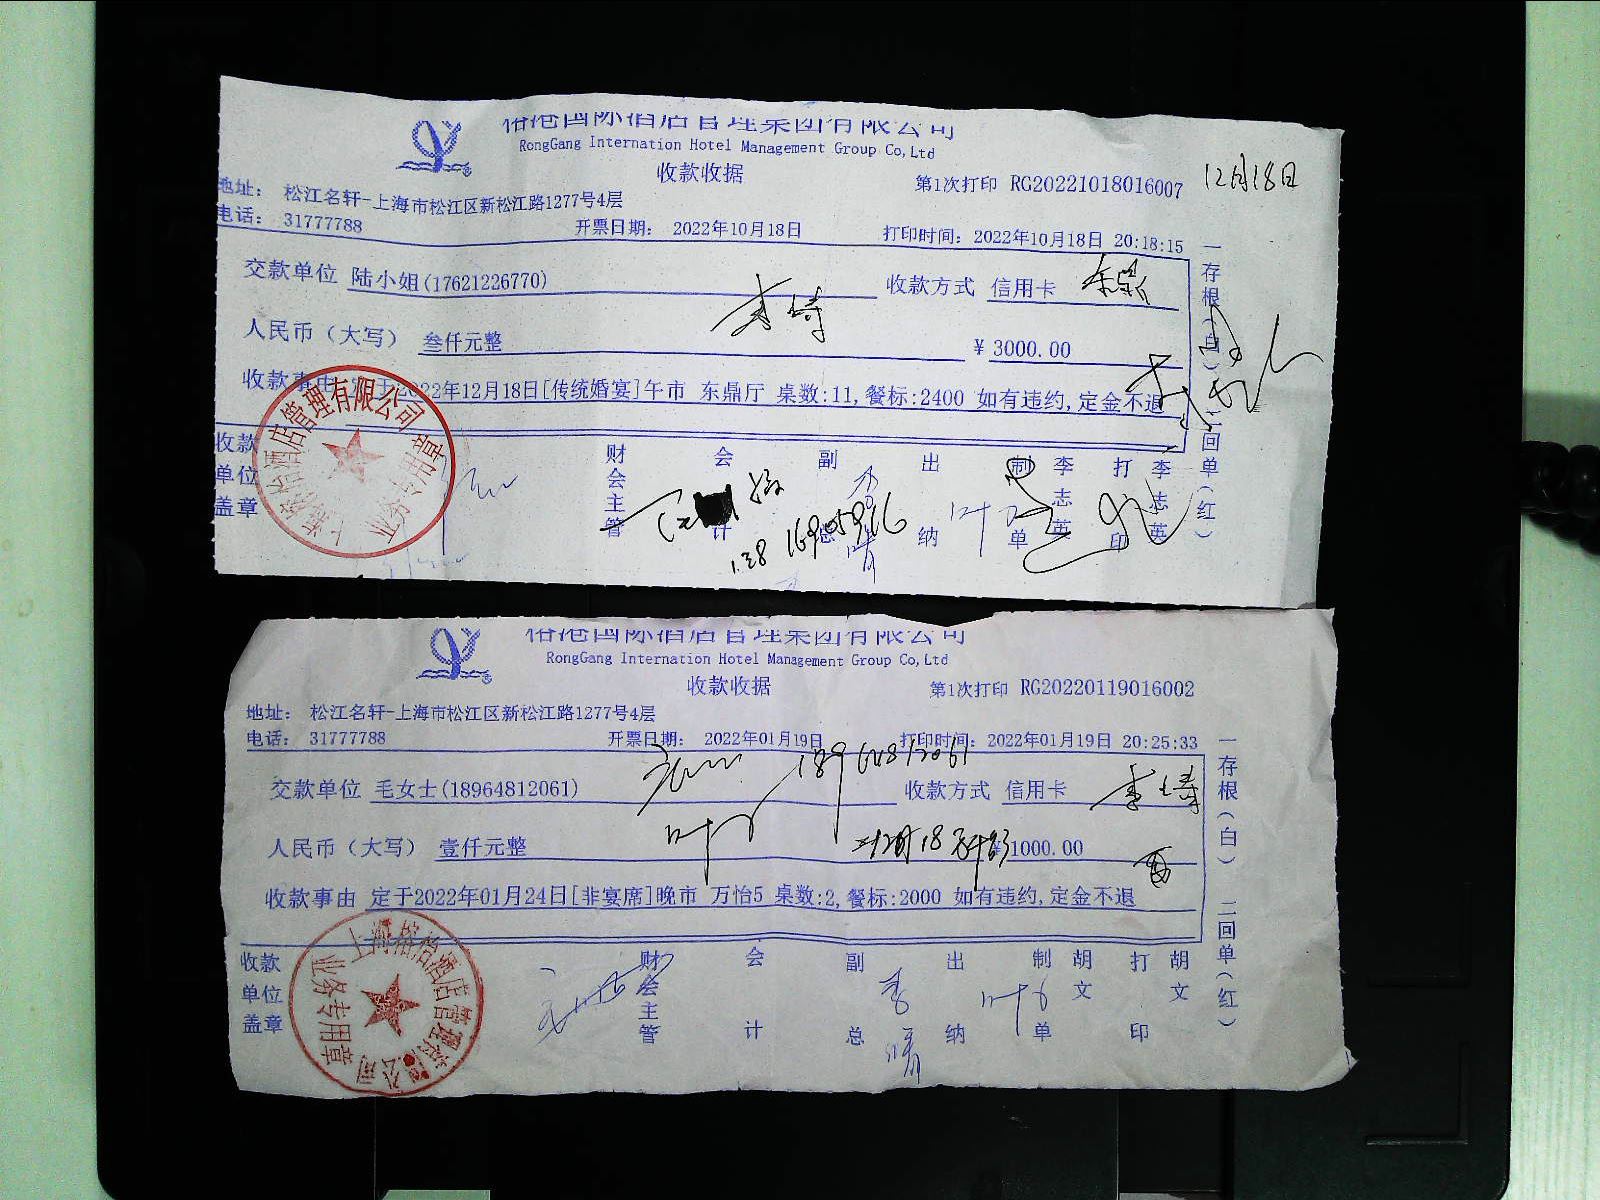 裕港国际酒店管理集团有限公司
RongGang Internation Hotel Management Group Co,Ltd
收款收据
第1次打印 RG20221018016007
12月18日
地址： 松江名轩-上海市松江区新松江路1277号4层
电话： 31777788
开票日期： 2022年10月18日
打印时间：2022年10月18日 20:18:15
交款单位 陆小姐(17621226770)
收款方式 信用卡
人民币（大写） 叁仟元整
¥ 3000.00
收款事由 定于2022年12月18日[传统婚宴]午市 东鼎厅 桌数:11,餐标:2400 如有违约,定金不退
一存根（白） 二回单（红）
收款单位盖章
财会主管
会计
副总
出纳
制单 李志英
打印 李志英
业务专用章
裕港国际酒店管理集团有限公司
RongGang Internation Hotel Management Group Co,Ltd
收款收据
第1次打印 RG20220119016002
地址： 松江名轩-上海市松江区新松江路1277号4层
电话： 31777788
开票日期： 2022年01月19日
打印时间：2022年01月19日 20:25:33
18964812061
交款单位 毛女士(18964812061)
收款方式 信用卡
人民币（大写） 壹仟元整
¥1000.00
收款事由 定于2022年01月24日[非宴席]晚市 万怡5 桌数:2,餐标:2000 如有违约,定金不退
一存根（白） 二回单（红）
收款单位盖章
财会主管
会计
副总
出纳
制单 胡文
打印 胡文
上海裕怡酒店管理有限公司
业务专用章